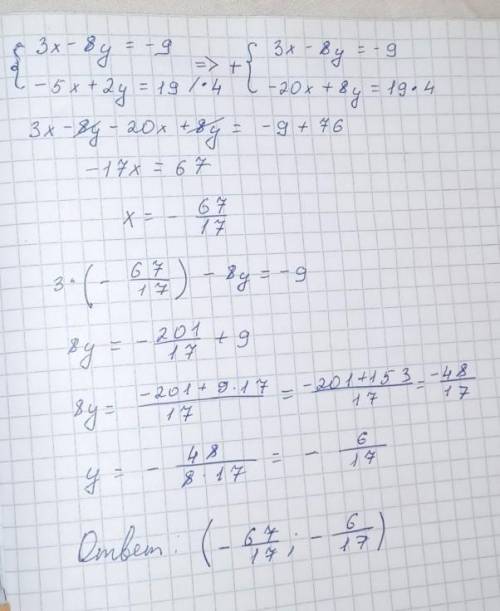 { 3x - 8y = -9 => + { 3x - 8y = -9
-5x + 2y = 19 /·4 -20x + 8y = 19·4
3x - 8y - 20x + 8y = -9 + 76
-17x = 67
x = - 67/17
3·(- 67/17) - 8y = -9
8y = - 201/17 + 9
8y = (-201 + 9·17)/17 = (-201 + 153)/17 = -48/17
y = - 48/(8·17) = - 6/17
Ответ: (- 67/17; - 6/17)